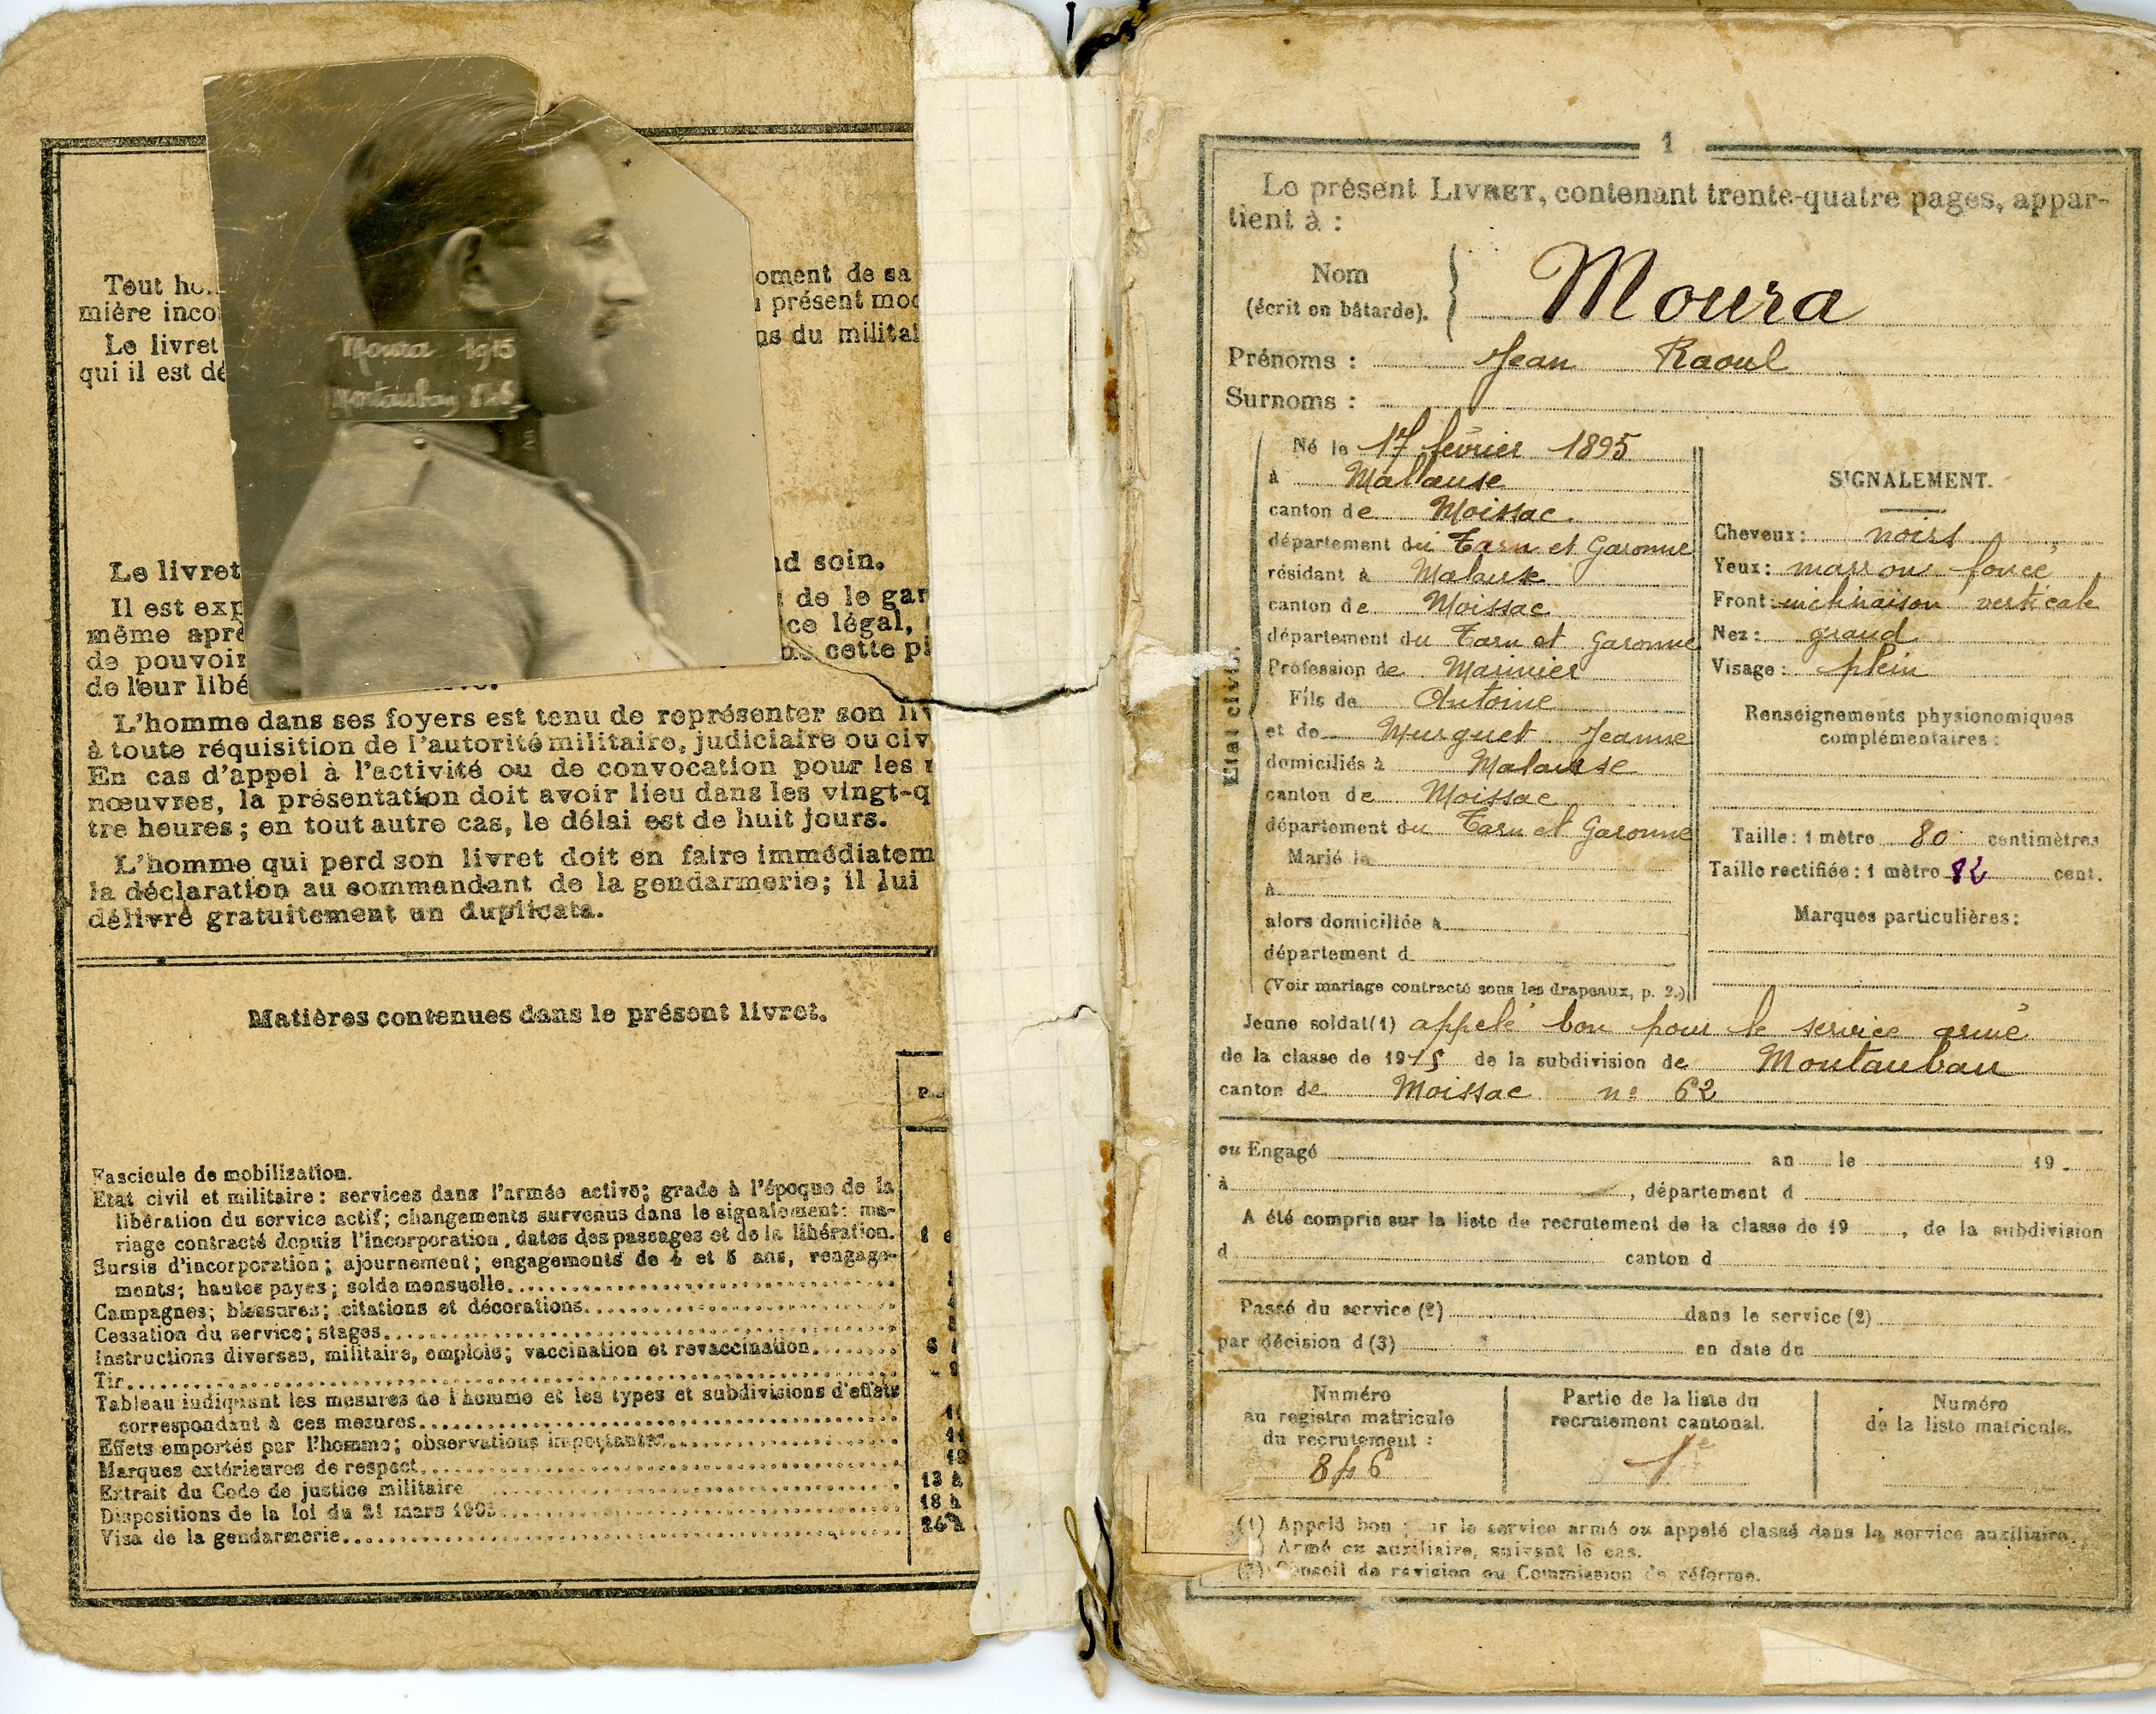 Tout ho
mière inco
Le livret
qui il est dé
oment de sa
présent mod
ns du militai
Moura 1915
Montauban 846
Le livret
nd soin.
Il est exp
de le gar
même aprè
ce légal,
de pouvoir
cette pi
de leur libé
L'homme dans ses foyers est tenu de représenter son liv
à toute réquisition de l'autorité militaire, judiciaire ou civ
En cas d'appel à l'activité ou de convocation pour les
nœuvres, la présentation doit avoir lieu dans les vingt-q
tre heures; en tout autre cas, le délai est de huit jours.
L'homme qui perd son livret doit en faire immédiatem
la déclaration au commandant de la gendarmerie; il lui
délivré gratuitement un duplicata.
Matières contenues dans le présent livret.
Fascicule de mobilisation.
Etat civil et militaire: services dans l'armée active; grade à l'époque de la
libération du service actif; changements survenus dans le signalement: ma-
riage contracté depuis l'incorporation, dates des passages et de la libération.
Sursis d'incorporation; ajournement; engagements de 4 et 5 ans, rengage-
ments; hautes payes; solde mensuelle
Campagnes; blessures; citations et décorations
Cessation du service; stages
Instructions diverses, militaire, emplois; vaccination et revaccination
Tir
Tableau indiquant les mesures de l'homme et les types et subdivisions d'effets
correspondant à ces mesures
Effets emportés par l'homme; observations importantes
Marques extérieures de respect
Extrait du Code de justice militaire 13 à
Dispositions de la loi du 21 mars 1905 18 à
Visa de la gendarmerie
1
Le présent LIVRET, contenant trente-quatre pages, appar-
tient à :
Nom
(écrit en bâtarde). Moura
Prénoms : Jean Raoul
Surnoms :
Etat civil.
Né le 17 février 1895
à Mallause
canton de Moissac
département du Tarn et Garonne
résidant à Malause
canton de Moissac
département du Tarn et Garonne
Profession de Marinier
Fils de Antoine
et de Murguet Jeanne
domiciliés à Malause
canton de Moissac
département du Tarn et Garonne
Marié le
à
alors domiciliée à
département d
(Voir mariage contracté sous les drapeaux, p. 2.)
SIGNALEMENT.
Cheveux: noirs
Yeux: marron foncé
Front: inclinaison verticale
Nez: grand
Visage: plein
Renseignements physionomiques
complémentaires:
Taille: 1 mètre 80 centimètres
Taille rectifiée: 1 mètro 82 cent.
Marques particulières:
Jeune soldat(1) appelé bon pour le service armé
de la classe de 1915 de la subdivision de Montauban
canton de Moissac nº 62
ou Engagé an le 19
à , département d
A été compris sur la liste de recrutement de la classe de 19 , de la subdivision
d canton d
Passé du service (2) dans le service (2)
par décision d (3) en date du
Numéro
au registre matricule
du recrutement :
846
Partie de la liste du
recrutement cantonal.
1e
Numéro
de la liste matricule.
(1) Appelé bon pour le service armé ou appelé classé dans le service auxiliaire.
Armé ou auxiliaire, suivant le cas.
(3) Conseil de révision ou Commission de réforme.